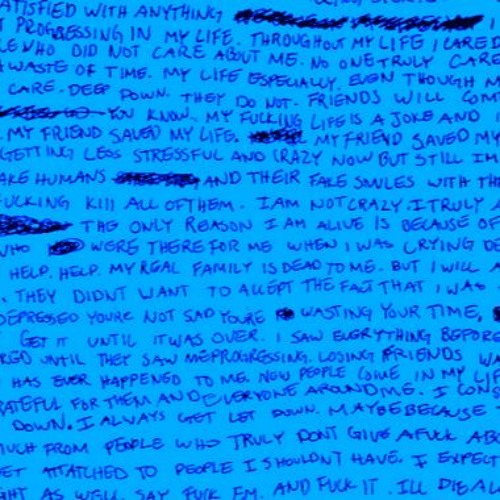 ATISFIED WITH ANYTHING
T PROGRESSING IN MY LIFE. THROUGHOUT MY LIFE I CARED
LE WHO DID NOT CARE ABOUT ME. NO ONE TRULY CARE
WASTE OF TIME. MY LIFE ESPECIALLY. EVEN THOUGH M
CARE. DEEP DOWN. THEY DO NOT. FRIENDS WILL COM
YOU KNOW, MY FUCKING LIFE IS A JOKE AND I
MY FRIEND SAVED MY LIFE. MY FRIEND SAVED MY
GETTING LESS STRESSFUL AND CRAZY NOW BUT STILL IM
AKE HUMANS AND THEIR FAKE SMILES WITH THE
FUCKING KILL ALL OF THEM. I AM NOT CRAZY. I TRULY A
THE ONLY REASON I AM ALIVE IS BECAUSE OF
WHO WERE THERE FOR ME WHEN I WAS CRYING DE
HELP. HELP. MY REAL FAMILY IS DEAD TO ME. BUT I WILL A
. THEY DIDNT WANT TO ACCEPT THE FACT THAT I WAS
DEPRESSED YOURE NOT SAD YOURE WASTING YOUR TIME,
GET IT UNTIL IT WAS OVER. I SAW EVERYTHING BEFORE
RED UNTIL THEY SAW ME PROGRESSING. LOSING FRIENDS WA
HAS EVER HAPPENED TO ME. NEW PEOPLE COME IN MY LIF
RATEFUL FOR THEM AND EVERYONE AROUND ME. I CONS
DOWN. I ALWAYS GET LET DOWN. MAYBE BECAUSE
MUCH FROM PEOPLE WHO TRULY DONT GIVE A FUCK ABO
ET ATTATCHED TO PEOPLE I SHOULDN'T HAVE. I EXPECT
GHT AS WELL SAY FUCK EM. AND FUCK IT. ILL DIE AL